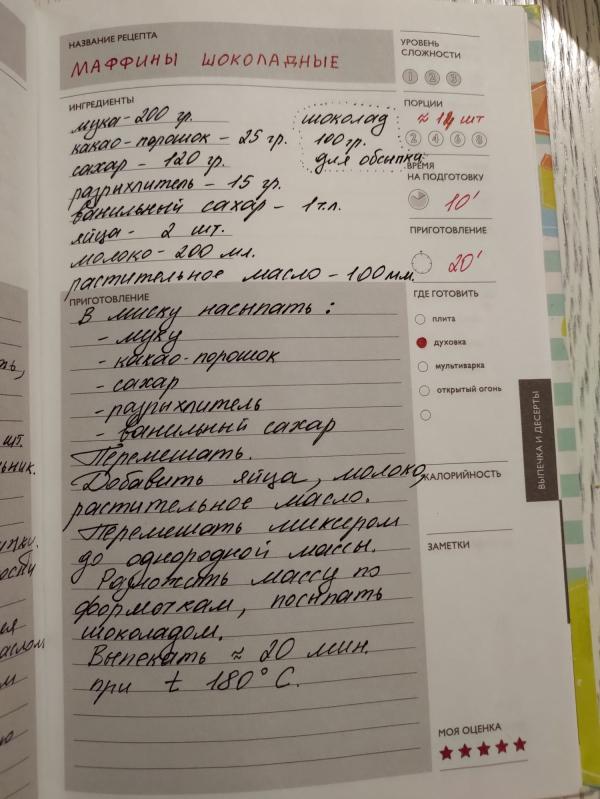 НАЗВАНИЕ РЕЦЕПТА
МАФФИНЫ ШОКОЛАДНЫЕ
УРОВЕНЬ
СЛОЖНОСТИ
1 2 3
ИНГРЕДИЕНТЫ
мука - 200 гр.
какао-порошок - 25 гр.
сахар - 120 гр.
разрыхлитель - 15 гр.
ванильный сахар - 1 т.л.
яйца - 2 шт.
молоко - 200 мл.
растительное масло - 100 мм.
шоколад
100 гр.
для обсыпки
ПОРЦИИ
≈ шт
2 4 6 8
ВРЕМЯ
НА ПОДГОТОВКУ
10'
ПРИГОТОВЛЕНИЕ
20'
ПРИГОТОВЛЕНИЕ
В миску насыпать:
- муку
- какао-порошок
- сахар
- разрыхлитель
- ванильный сахар
Перемешать.
Добавить яйца, молоко,
растительное масло.
Перемешать миксером
до однородной массы.
Разложить массу по
формочкам, посыпать
шоколадом.
Выпекать ≈ 20 мин.
при t 180° С.
ГДЕ ГОТОВИТЬ
плита
духовка
мультиварка
открытый огонь
ВЫПЕЧКА И ДЕСЕРТЫ
КАЛОРИЙНОСТЬ
ЗАМЕТКИ
МОЯ ОЦЕНКА